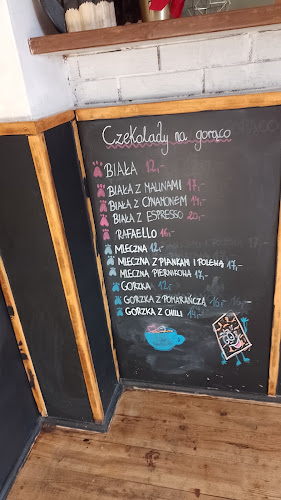 Czekolady na gorąco
BIAŁA 12,-
BIAŁA Z MALINAMI 17,-
BIAŁA Z CYNAMONEM 14,-
BIAŁA Z ESPRESSO 20,-
RAFAELLO 16,-
MLECZNA 12,-
MLECZNA Z PIANKAMI I POLEWĄ 17,-
MLECZNA PIERNIKOWA 17,-
GORZKA 12,-
GORZKA Z POMARAŃCZĄ 16,-
GORZKA Z CHILI 14,-